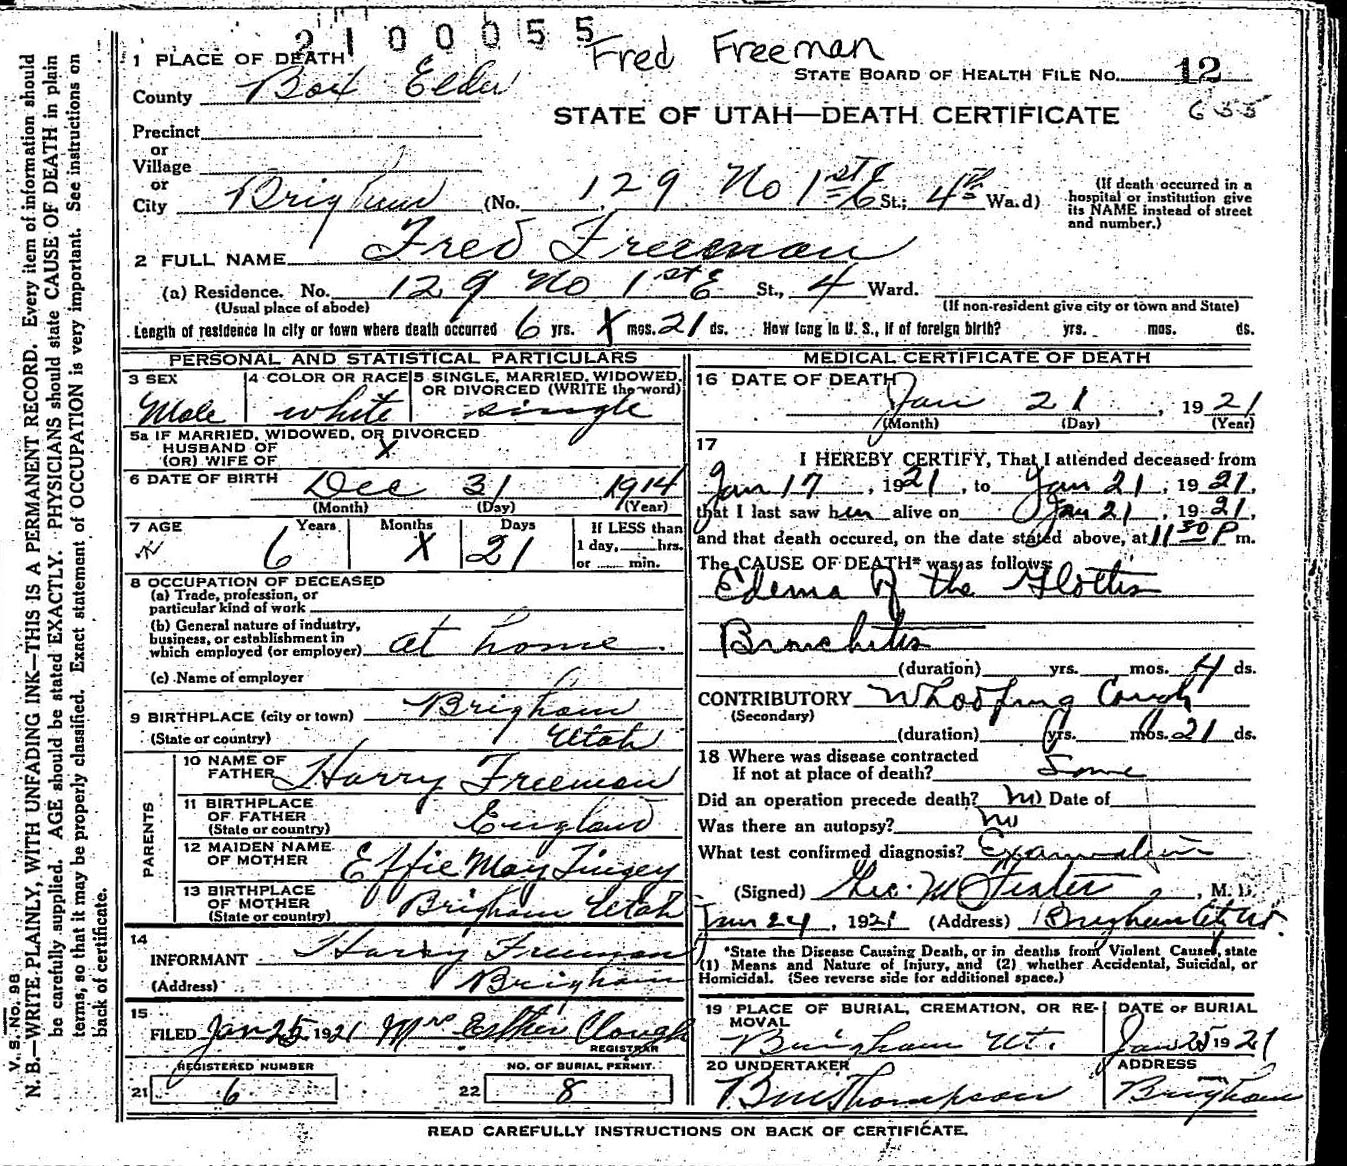 2100055
Fred Freeman
1 PLACE OF DEATH
STATE BOARD OF HEALTH FILE NO. 12
County Box Elder
635
STATE OF UTAH—DEATH CERTIFICATE
Precinct
or
Village
or
City Brigham (No. 129 No 1st E St.; 4th Ward)
(If death occurred in a hospital or institution give its NAME instead of street and number.)
2 FULL NAME Fred Freeman
(a) Residence. No. 129 No 1st E St., 4 Ward.
(Usual place of abode) (If non-resident give city or town and State)
Length of residence in city or town where death occurred 6 yrs. X mos. 21 ds. How long in U. S., if of foreign birth? yrs. mos. ds.
PERSONAL AND STATISTICAL PARTICULARS
3 SEX 4 COLOR OR RACE 5 SINGLE, MARRIED, WIDOWED, OR DIVORCED (WRITE the word)
Male white single
5a IF MARRIED, WIDOWED, OR DIVORCED
HUSBAND OF X
(OR) WIFE OF
6 DATE OF BIRTH Dec 31 1914
(Month) (Day) (Year)
7 AGE Years Months Days If LESS than
6 X 21 1 day, hrs.
or min.
8 OCCUPATION OF DECEASED
(a) Trade, profession, or
particular kind of work
(b) General nature of industry,
business, or establishment in
which employed (or employer) at home
(c) Name of employer
9 BIRTHPLACE (city or town) Brigham
(State or country) Utah
PARENTS
10 NAME OF
FATHER Harry Freeman
11 BIRTHPLACE
OF FATHER England
(State or country)
12 MAIDEN NAME
OF MOTHER Effie May Tingey
13 BIRTHPLACE
OF MOTHER Brigham Utah
(State or country)
14
INFORMANT Harry Freeman
(Address) Brigham
15
FILED Jan 25 1921 Mrs Esther Clough
REGISTRAR
REGISTERED NUMBER NO. OF BURIAL PERMIT
21 6 22 8
MEDICAL CERTIFICATE OF DEATH
16 DATE OF DEATH
Jan 21, 1921
(Month) (Day) (Year)
17
I HEREBY CERTIFY, That I attended deceased from
Jan 17, 1921, to Jan 21, 1921,
that I last saw him alive on Jan 21, 1921,
and that death occured, on the date stated above, at 11 30 P m.
The CAUSE OF DEATH* was as follows:
Edema of the Glottis
Bronchitis
(duration) yrs. mos. 4 ds.
CONTRIBUTORY Whooping Cough
(Secondary)
(duration) yrs. mos. 21 ds.
18 Where was disease contracted
If not at place of death?
Did an operation precede death? no Date of
Was there an autopsy? no
What test confirmed diagnosis? Examination
(Signed) Geo. M Fister, M. D.
Jan 24, 1921 (Address) Brigham City Ut.
*State the Disease Causing Death, or in deaths from Violent Causes, state
(1) Means and Nature of Injury, and (2) whether Accidental, Suicidal, or
Homicidal. (See reverse side for additional space.)
19 PLACE OF BURIAL, CREMATION, OR RE- DATE OF BURIAL
MOVAL
Brigham Ut. Jan 25 1921
20 UNDERTAKER ADDRESS
Thompson Brigham
READ CAREFULLY INSTRUCTIONS ON BACK OF CERTIFICATE.
V. S. No. 98
N. B.—WRITE PLAINLY, WITH UNFADING INK—THIS IS A PERMANENT RECORD. Every item of information should
be carefully supplied. AGE should be stated EXACTLY. PHYSICIANS should state CAUSE OF DEATH in plain
terms, so that it may be properly classified. Exact statement of OCCUPATION is very important. See instructions on
back of certificate.